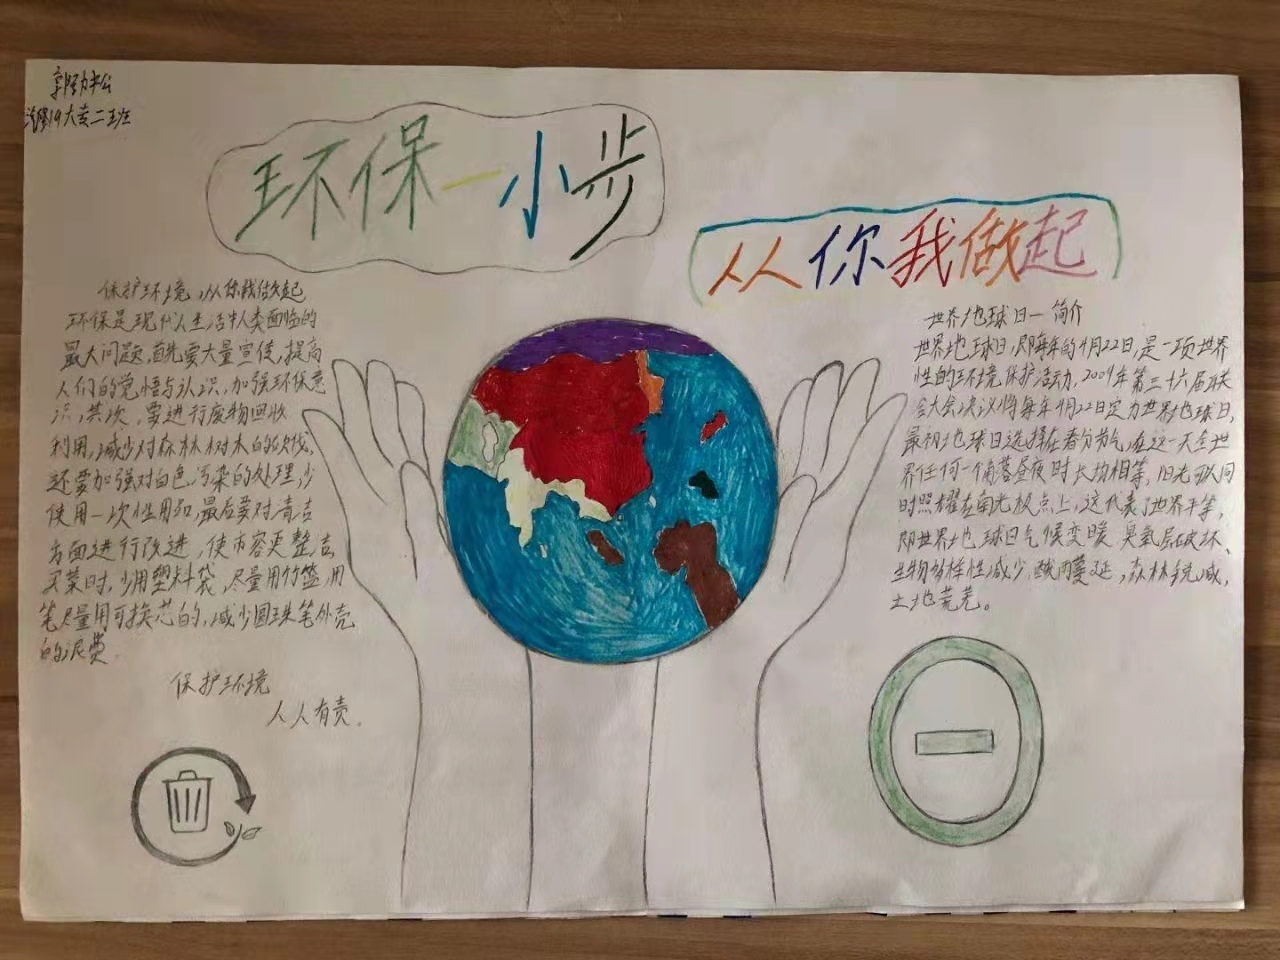 郭劲松
汽修19大专二班
环保一小步
从你我做起
保护环境,从你我做起
环保是现代人生活中人类面临的
最大问题,首先要大量宣传,提高
人们的觉悟与认识,加强环保意
识,其次,要进行废物回收
利用,减少对森林树木的砍伐,
还要加强对白色污染的处理,少
使用一次性用品,最后要对清洁
方面进行改进,使市容更整洁,
买菜时,少用塑料袋,尽量用竹篮,用
笔尽量用可换芯的,减少圆珠笔外壳
的浪费.
保护环境
人人有责.
世界地球日一简介
世界地球日,即每年的4月22日,是一项世界
性的环境保护活动,2009年第三十六届联
会大会决议将每年4月22日定为世界地球日,
最初地球日选择在春分节气,在这一天全世
界任何一个角落昼夜时长均相等,阳光可以同
时照耀在南光极点上,这代表了世界平等,
即世界地球日气候变暖 臭氧层破坏、
生物多样性减少,酸雨蔓延,森林锐减,
土地荒芜。